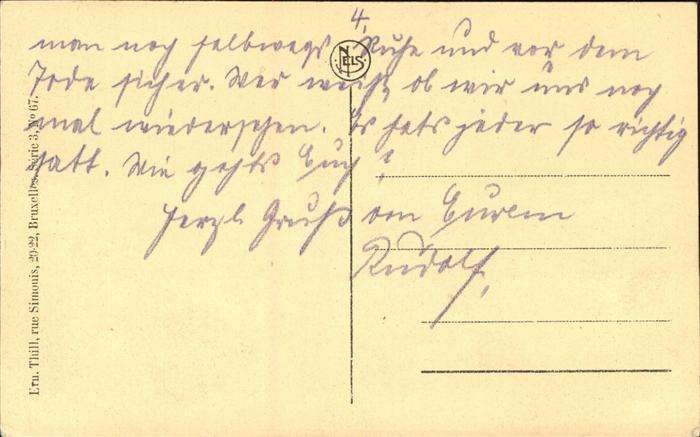 4.
man noch halbwegs Ruhe und vor dem
Tode sicher. Wer weiß, ob wir uns noch
mal wiedersehen. Es hats jeder so richtig
satt. Wie gehts Euch?
Herzl. Gruß von Eurem
Rudolf.
NELS
Ern. Thill, rue Simonis, 20-22, Bruxelles. Série 3, No 67.